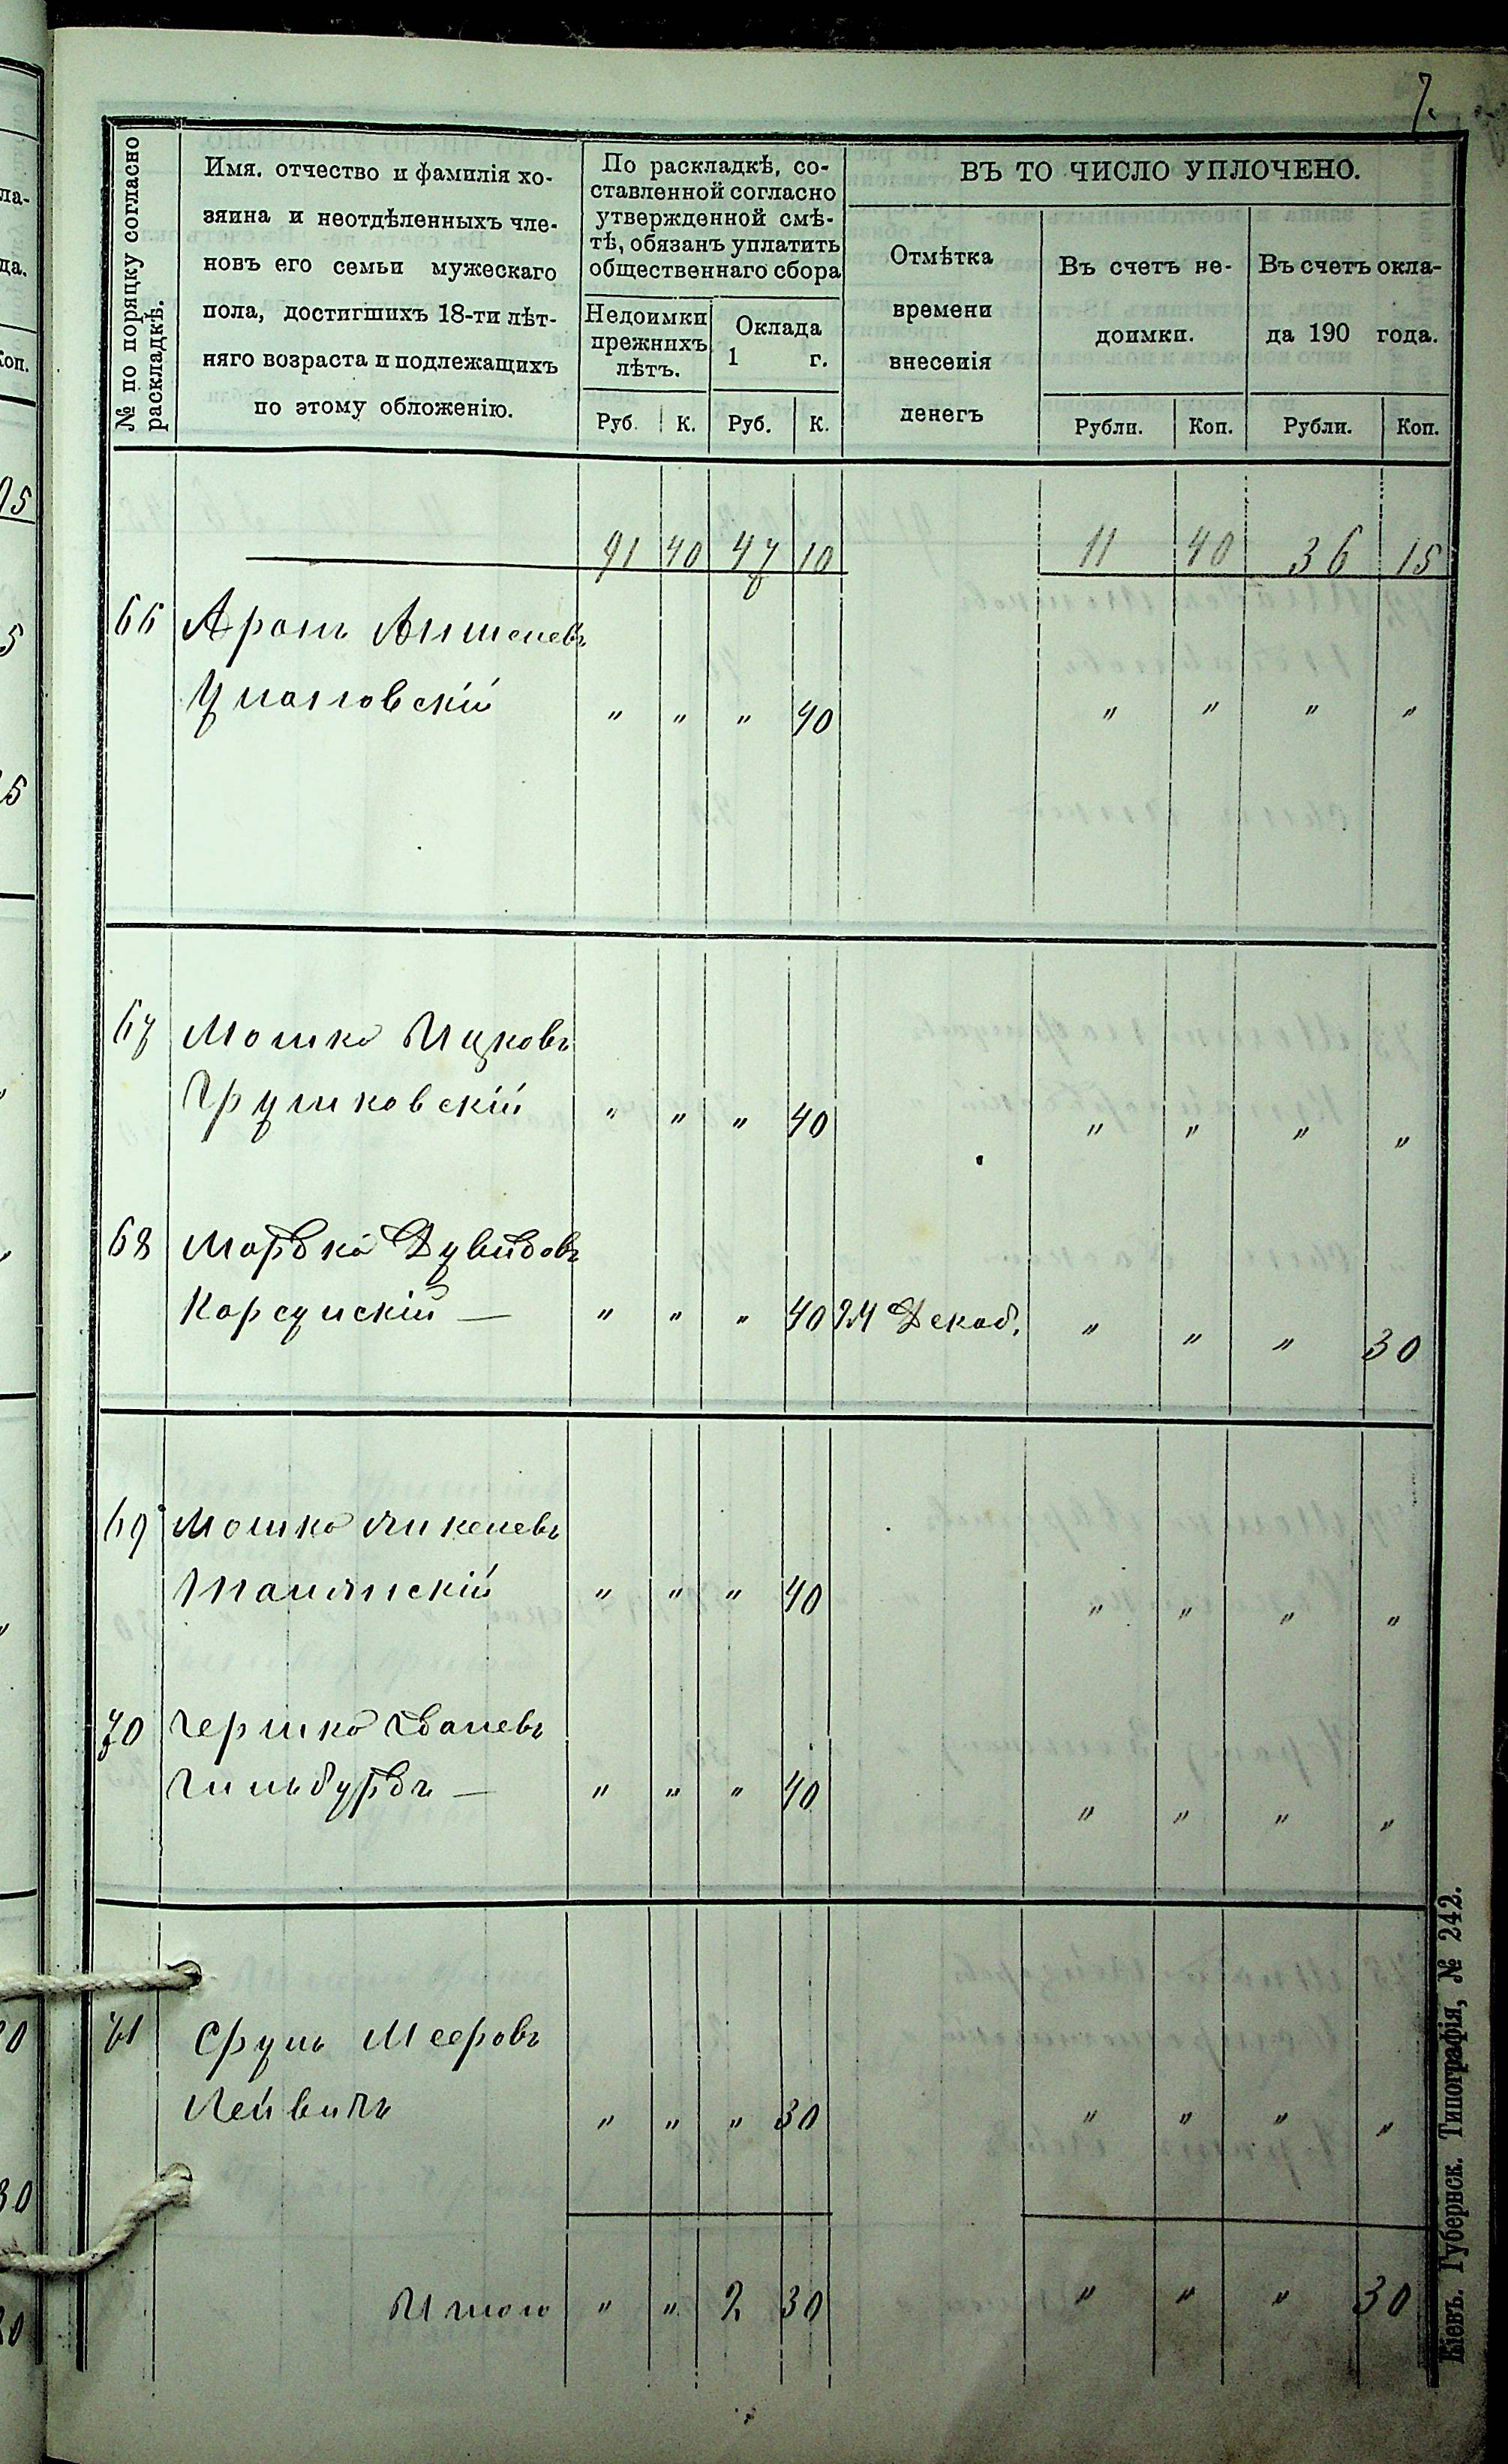 7.
№ по порядку согласно
раскладкѣ.
Имя, отчество и фамилія хо-
зяина и неотдѣленныхъ чле-
новъ его семьи мужескаго
пола, достигшихъ 18-ти лѣт-
няго возраста и подлежащихъ
по этому обложенію.
По раскладкѣ, со-
ставленной согласно
утвержденной смѣ-
тѣ, обязанъ уплатить
общественнаго сбора
Недоимки
прежнихъ
лѣтъ.
Оклада
1 г.
Руб. К. Руб. К.
ВЪ ТО ЧИСЛО УПЛОЧЕНО.
Отмѣтка
времени
внесенія
денегъ
Въ счетъ не-
доимки.
Рубли. Коп.
Въ счетъ окла-
да 190 года.
Рубли. Коп.
91 40 47 10 11 40 36 15
66 Аронъ Аншелевъ
Умановскій " " " 40 " " " "
67 Мошко Ицковъ
Грушковскій " " " 40 " " " "
68 Мордко Дувидовъ
Корсунскій — " " " 40 24 Декаб. " " " 30
69 Мошко
" " " 40 " " " "
70 Гершко
— " " " 40 " " " "
71 Сруль Мееровъ
Лейвичъ " " " 30 " " " "
Итого " " 2 30 " " " 30
Кіевъ. Губернск. Типографія, № 242.